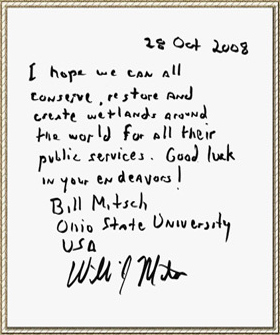 28 Oct 2008
I hope we can all
conserve, restore and
create wetlands around
the world for all their
public services. Good luck
in your endeavors!
Bill Mitsch
Ohio State University
USA